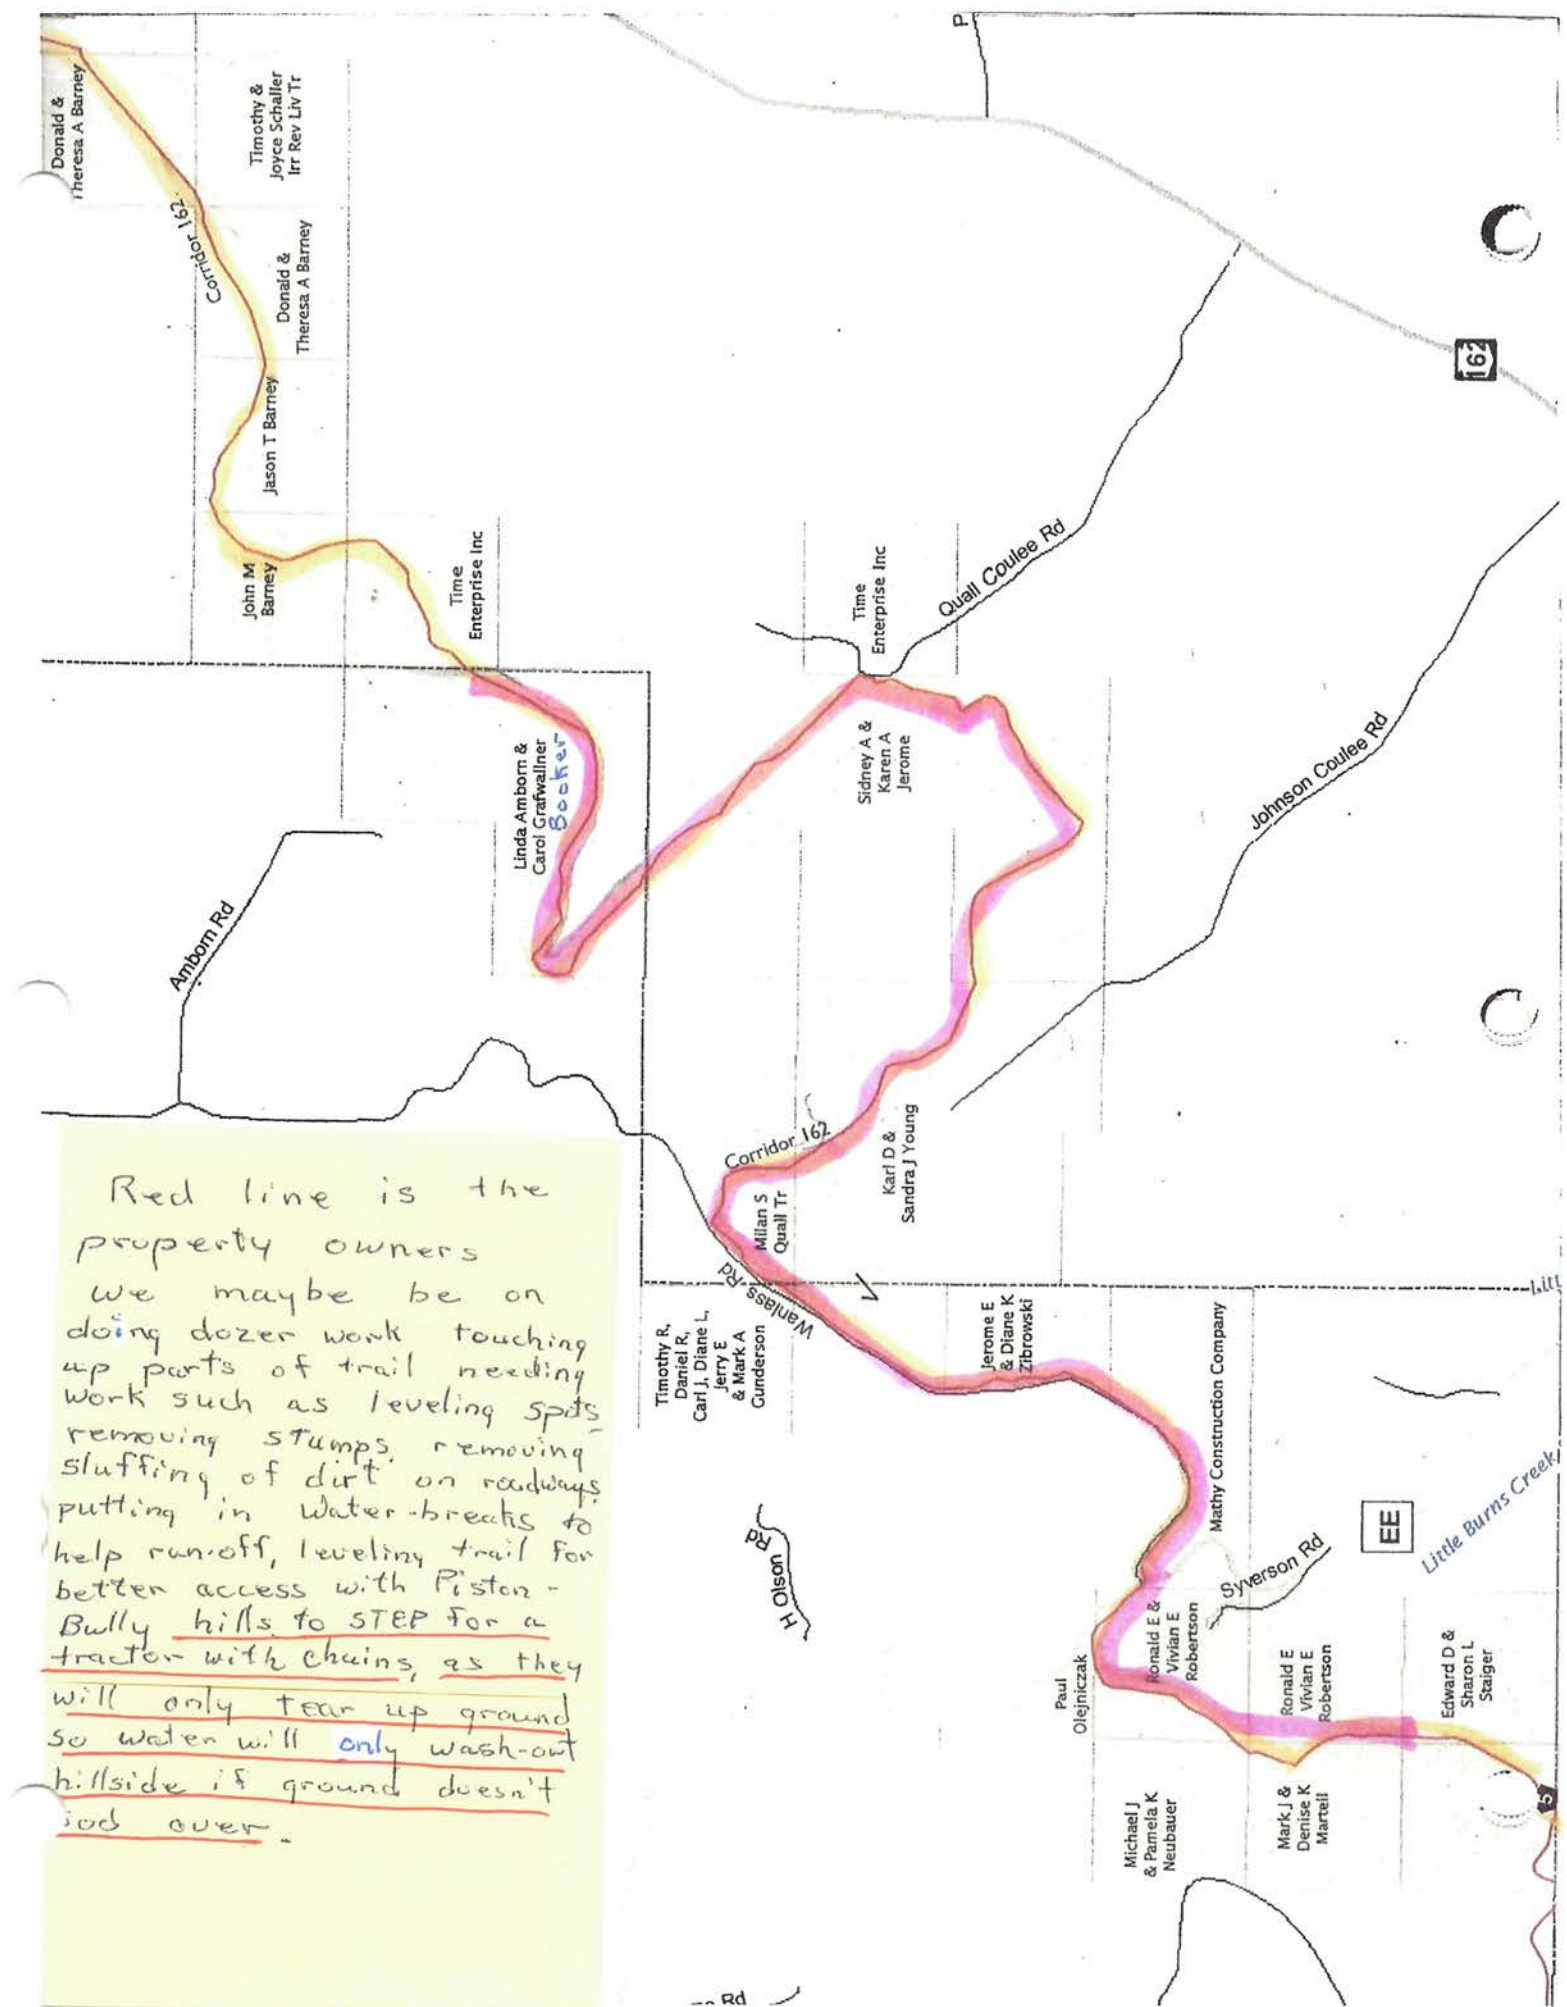 Donald &
Theresa A Barney
Timothy &
Joyce Schaller
Irr Rev Liv Tr
Corridor 162
Donald &
Theresa A Barney
Jason T Barney
John M
Barney
Time
Enterprise Inc
P
162
Quall Coulee Rd
Time
Enterprise Inc
Linda Amborn &
Carol Grafwallner
Booker
Sidney A &
Karen A
Jerome
Johnson Coulee Rd
Amborn Rd
Corridor 162
Karl D &
Sandra J Young
Milan S
Quall Tr
Wanlass Rd
Timothy R,
Daniel R,
Carl J, Diane L,
Jerry E
& Mark A
Gunderson
Jerome E
& Diane K
Zibrowski
Mathy Construction Company
H Olson Rd
Syverson Rd
EE
Little Burns Creek
Litt
Paul
Olejniczak
Ronald E &
Vivian E
Robertson
Ronald E
Vivian E
Robertson
Edward D &
Sharon L
Staiger
Michael J
& Pamela K
Neubauer
Mark J &
Denise K
Martell
5
Rd
Red line is the
property owners
we maybe be on
doing dozer work touching
up parts of trail needing
work such as leveling spots,
removing stumps, removing
sluffing of dirt on roadways,
putting in water-breaks to
help run-off, leveling trail for
better access with Piston-
Bully hills to STEP for a
tractor with chains, as they
will only tear up ground
so water will only wash-out
hillside if ground doesn't
sod over.